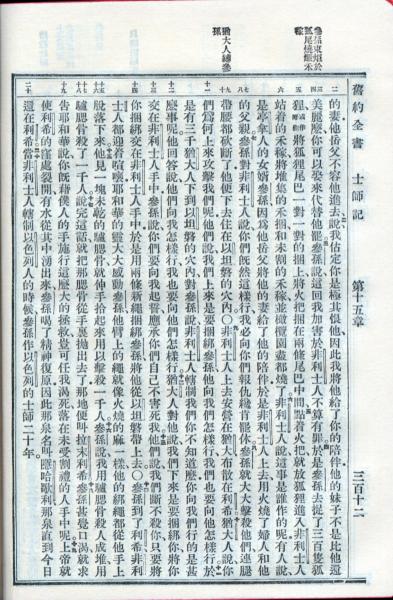 舊約全書 士師記 第十五章 三百十二
猶大人縛參孫
的妻他岳父不容他進去說我估定你是極其恨他因此我將他給了你的陪伴他的妹子不是比他還
美麗麽你可以娶來代替他罷參孫說這回我加害於非利士人不算有罪於是參孫去捉了三百隻狐
狸將狐狸尾巴一對一對的捆上將火把捆在兩條尾巴中間點着火把就放狐狸進入非利士人
站着的禾稼將堆集的禾捆和未割的禾稼並橄欖園盡都燒了非利士人說這事是誰作的呢有人說
是亭拿人的女婿參孫因爲他岳父將他的妻給了他的陪伴於是非利士人上去用火燒了婦人和他
的父親參孫對非利士人說你們既然這樣行我必向你們報仇纔肯罷休參孫就大大擊殺他們連腿
帶腰都砍斷了他便下去住在以坦磐的穴內〇非利士人上去安營在猶大布散在利希猶大人說你
們爲何上來攻擊我們呢他們說我們上來是要捆綁參孫他向我們怎樣行我們也要向他怎樣行於
是有三千猶大人下到以坦磐的穴內對參孫說非利士人轄制我們你不知道麽你向我們行的是甚
麽事呢他回答說他們向我怎樣行我也要向他們怎樣行猶大人對他說我們下來是要捆綁你將你
交在非利士人手中參孫說你們要向我起誓應承你們自己不害死我他們說我們斷不殺你只要將
你捆綁交在非利士人手中於是用兩條新繩捆綁參孫將他從以坦磐帶上去〇參孫到了利希非利
士人都迎着喧嚷耶和華的靈大大感動參孫他臂上的繩就像火燒的麻一樣他的綁繩都從他手上
脫落下來他見一塊未乾的驢腮骨就伸手拾起來用以擊殺一千人參孫說我用驢腮骨殺人成堆用
驢腮骨殺了一千人說完這話就把那腮骨從手裏拋出去了那地便叫拉末利希參孫甚覺口渴就求
告耶和華說你既藉僕人的手施行這麽大的拯救豈可任我渴死落在未受割禮的人手中呢上帝就
使利希的窪處裂開有水從其中湧出來參孫喝了精神復原因此那泉名叫隱哈歌利那泉直到今日
還在利希當非利士人轄制以色列人的時候參孫作以色列的士師二十年